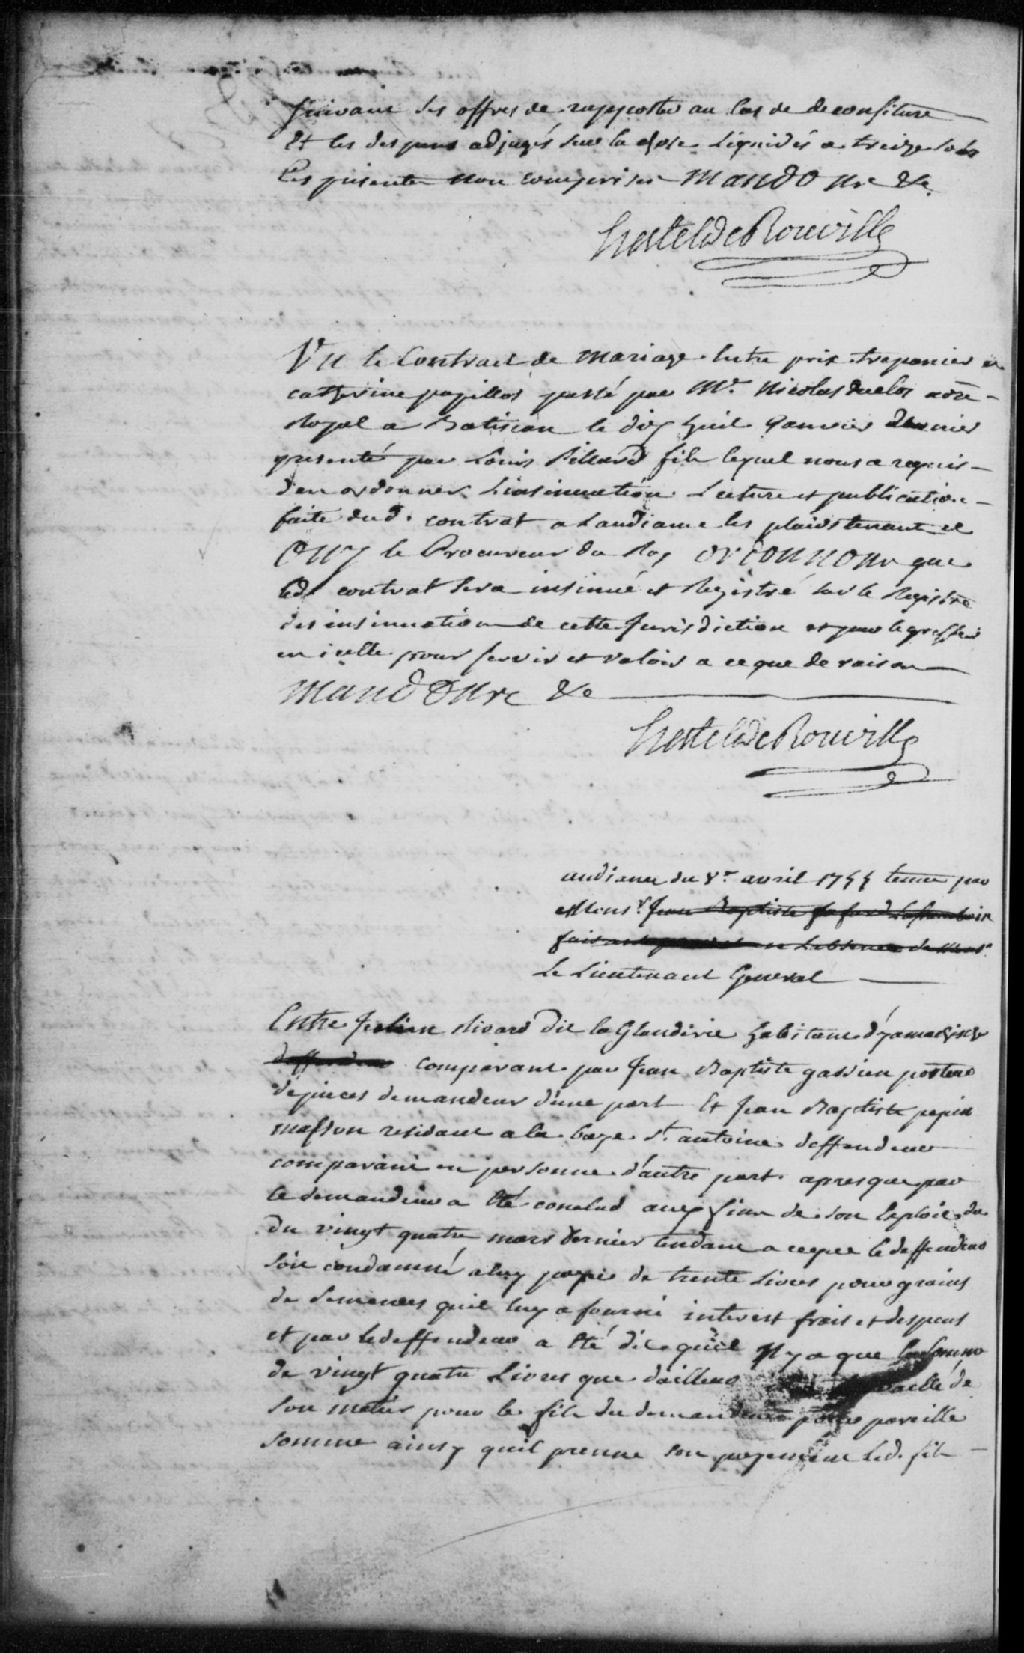 suivant ses offres de rapporter au cas de deconfiture
Et les despens adjugés sur la chose liquidés a treize sols
Les presentes non comprises Mandons &c.
hertel de Rouville
Vu le Contract de mariage entre prix trepanier et
catherine papillos passé par Me. Nicolas duclos nore
Royal a Batiscan le dix huit Janvier dernier
presenté par Louis Pillard fils lequel nous a requis
d'en ordonner L'insinuation Lecture et publication
faite dud. contrat a Laudiance les plaids tenant et
Ouy le Procureur du Roy ordonnons que
led. contrat sera insinué et Registré sur le Registre
des insinuations de cette Jurisdiction et par le greffier
en icelle pour servir et valoir a ce que de raison
Mandons &c
hertel de Rouville
audiance du 8r. avril 1755 tenue par
Monsr. Jean Baptiste
faisant pour Labsence de Monsr.
Le Lieutenant General
Entre Julien Rivard Dit la Glanderie habitant d'yamachiche
deffendeur comparant par Jean Baptiste gastien porteur
de pieces demandeur d'une part Et Jean Baptiste pepin
masson residant a la baye St. antoine deffendeur
comparant en personne d'autre part apres que par
le demandeur a Eté conclud aux fins de son Exploit du
du vingt quatre mars dernier tendant a ce que le deffendeur
soit condamné a luy payer de trente Livres pour grains
de semences quil luy a fourni interest frais et despens
et par le deffendeur a Eté dit quil n'y a que la somme
de vingt quatre Livres que dailleurs travaillé de
son métier pour le fils du demandeur pour pareille
somme ainsy quil prenne son payement led. fils